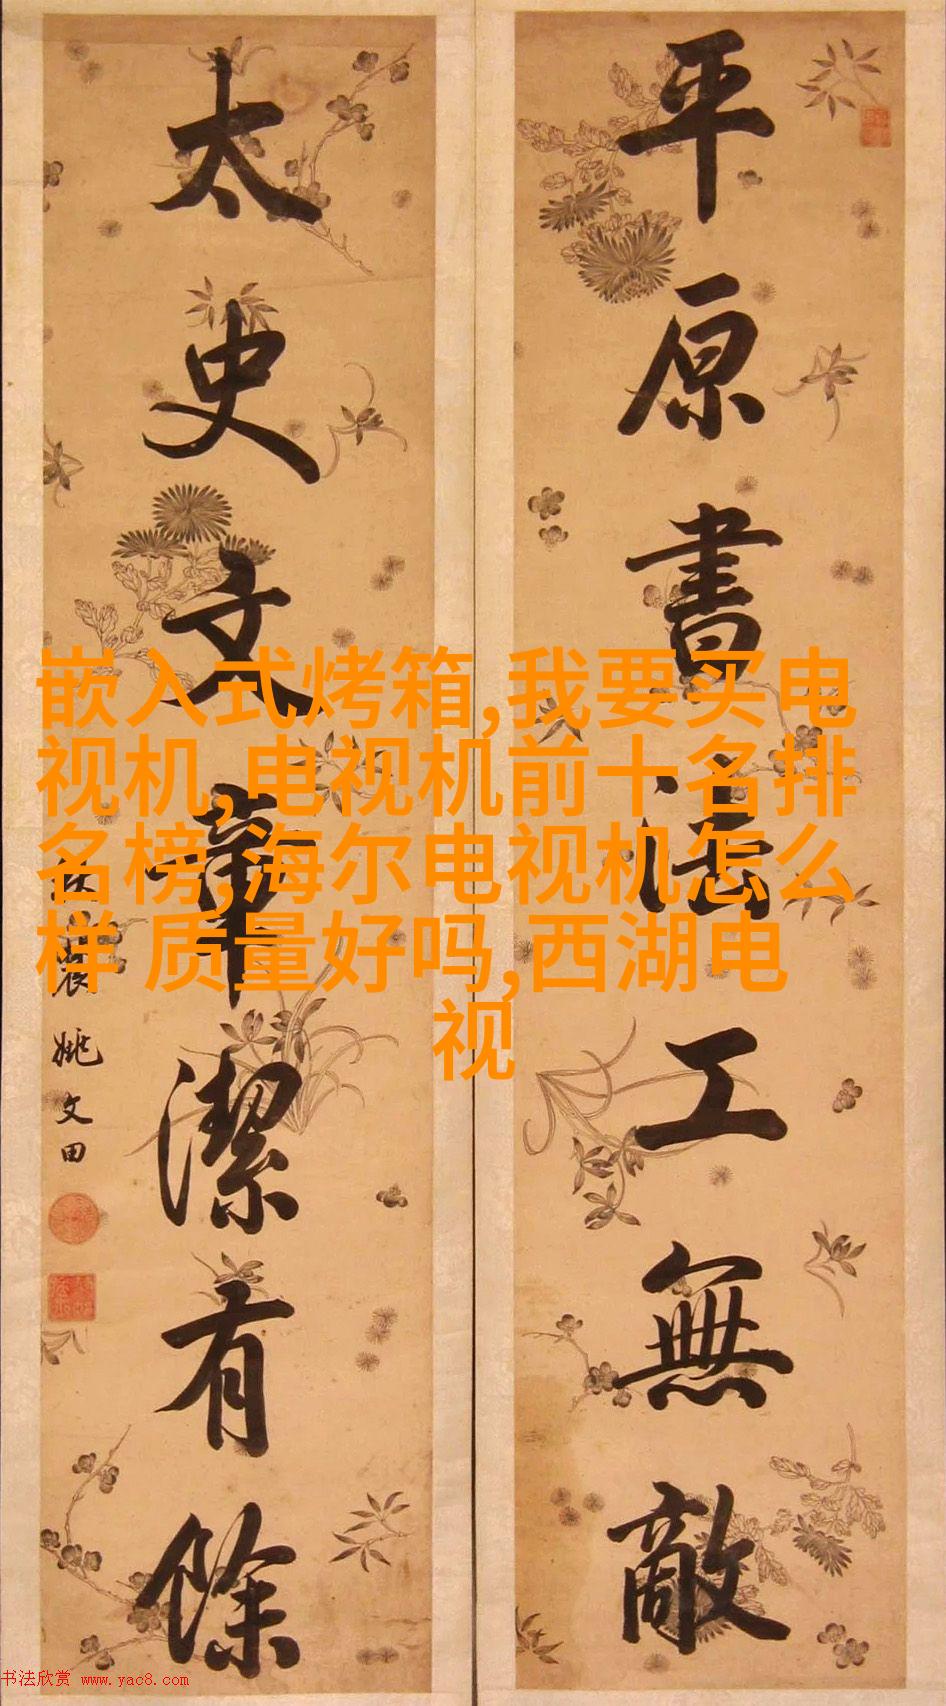 平原書法工無敵
太史文章潔有餘
姚文田
嵌入式烤箱,我要买电
视机,电视机前十名排
名榜,海尔电视机怎么
样 质量好吗,西湖电
视
书法欣赏 www.yac8.com